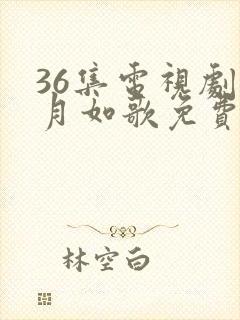 36集電視劇
月如歌免費
林空白